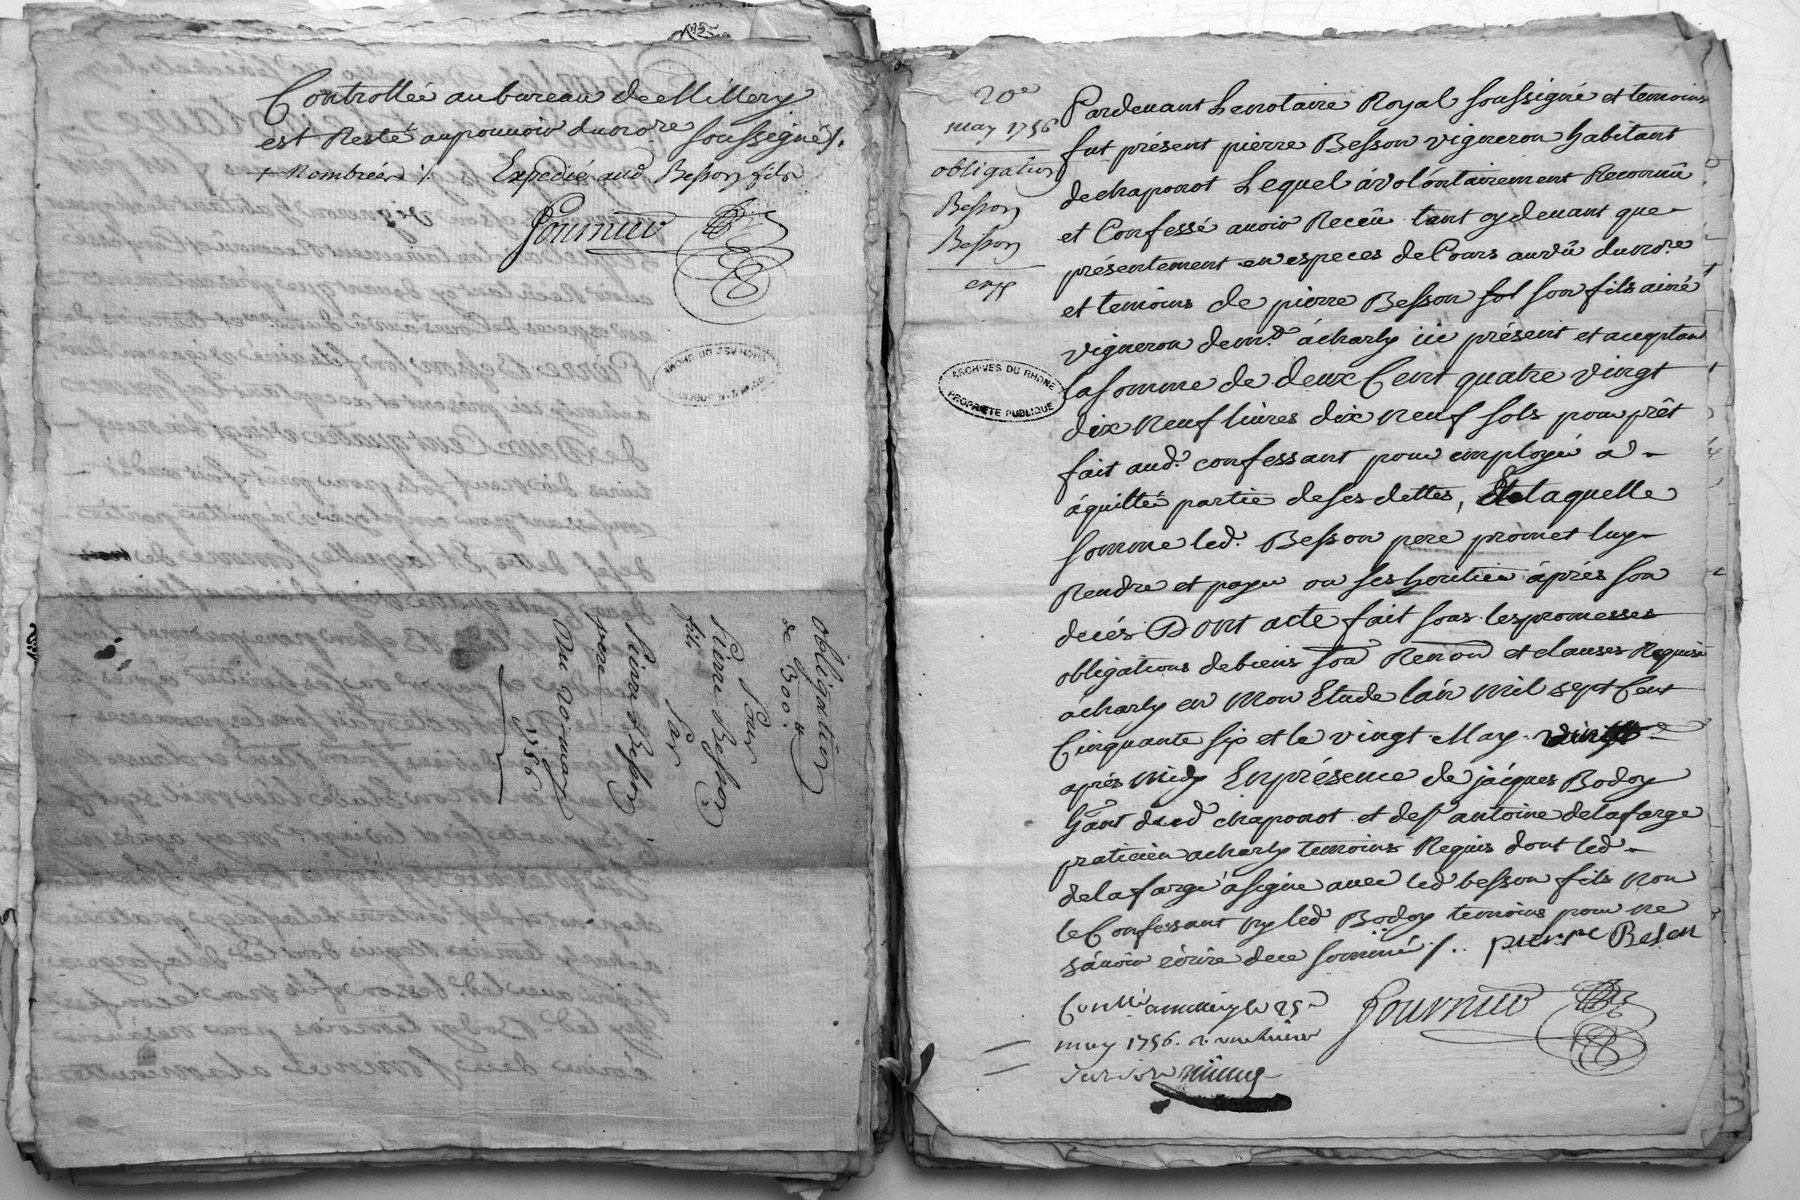 Controllée au bureau de Millery
est Resté au pouvoir du no.re soussigné /.
+ Nombrée /. Expedié aud Besson fils
fournier
obligation
de 300 #
Pour
Pierre Besson
fils
Par
Pierre Besson
pere
Du 20 may
1756
20e
may 1756
obligation
Besson
Besson
exp
ARCHIVES DU RHÔNE
PROPRIÉTÉ PUBLIQUE
Pardevant Le notaire Royal soussigné et temoins
fut présent pierre Besson vigneron habitant
de chaponot Lequel á volontairement Reconnû
et Confessé avoir Receu tant cy devant que
présentement en especes de Cours au vû du no.re
et temoins de pierre Besson son fils ainé
vigneron dem.t á charly ici présent et acceptant
la somme de deux Cent quatre vingt
dix neuf livres dix neuf sols pour prêt
fait aud. confessant pour employé a
áquitté partie de ses dettes, laquelle
somme led. Besson pere promet luy
Rendre et payer ou ses heritier áprés son
decés Dont acte fait sous les promesses
obligations de biens son Renon et clauses Requise
a charly en mon Etude l'an mil sept Cent
Cinquante six et le vingt May
aprés midy En présence de jácques Bodoy
h'ant dud chaponot et de s.r antoine delafarge
praticien a charly temoins Requis dont led
delafarge a signé avec led besson fils non
le Confessant ny led Bodoy temoins pour ne
sávoir écrire de ce sommé /. pierre Beson
Conllé a millery le 25
may 1756. R.
fournier